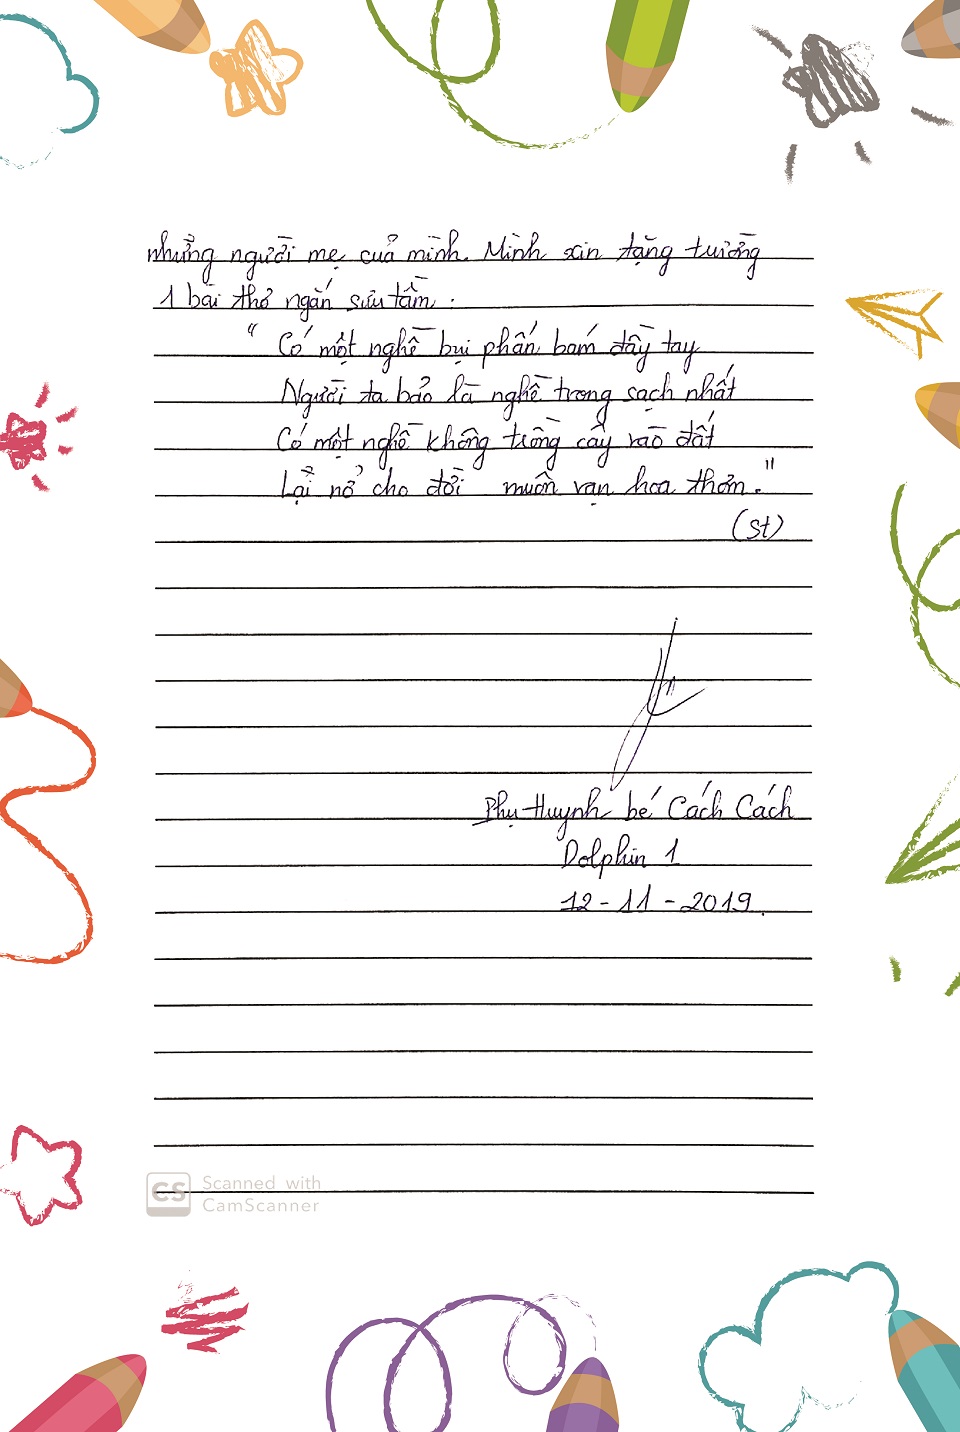 những người mẹ của mình. Mình xin tặng trường
1 bài thơ ngắn sưu tầm :
" Có một nghề bụi phấn bám đầy tay
Người ta bảo là nghề trong sạch nhất
Có một nghề không trồng cây vào đất
Lại nở cho đời muôn vạn hoa thơm."
(st)
Phụ Huynh bé Cách Cách
Dolphin 1
12-11-2019.
CS Scanned with
CamScanner